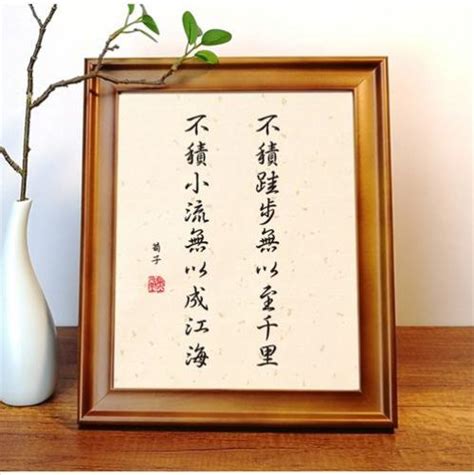 不積跬步無以至千里
不積小流無以成江海
荀子